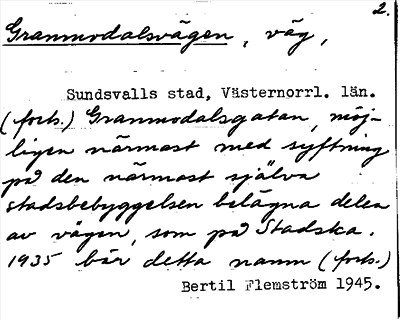 2.
Granmodalsvägen, väg,
Sundsvalls stad, Västernorrl. län.
(forts.) Granmodalsgatan, möj-
ligen närmast med syftning
på den närmast själva
stadsbebyggelsen belägna delen
av vägen, som på Stadska.
1935 bär detta namn (forts.)
Bertil Flemström 1945.